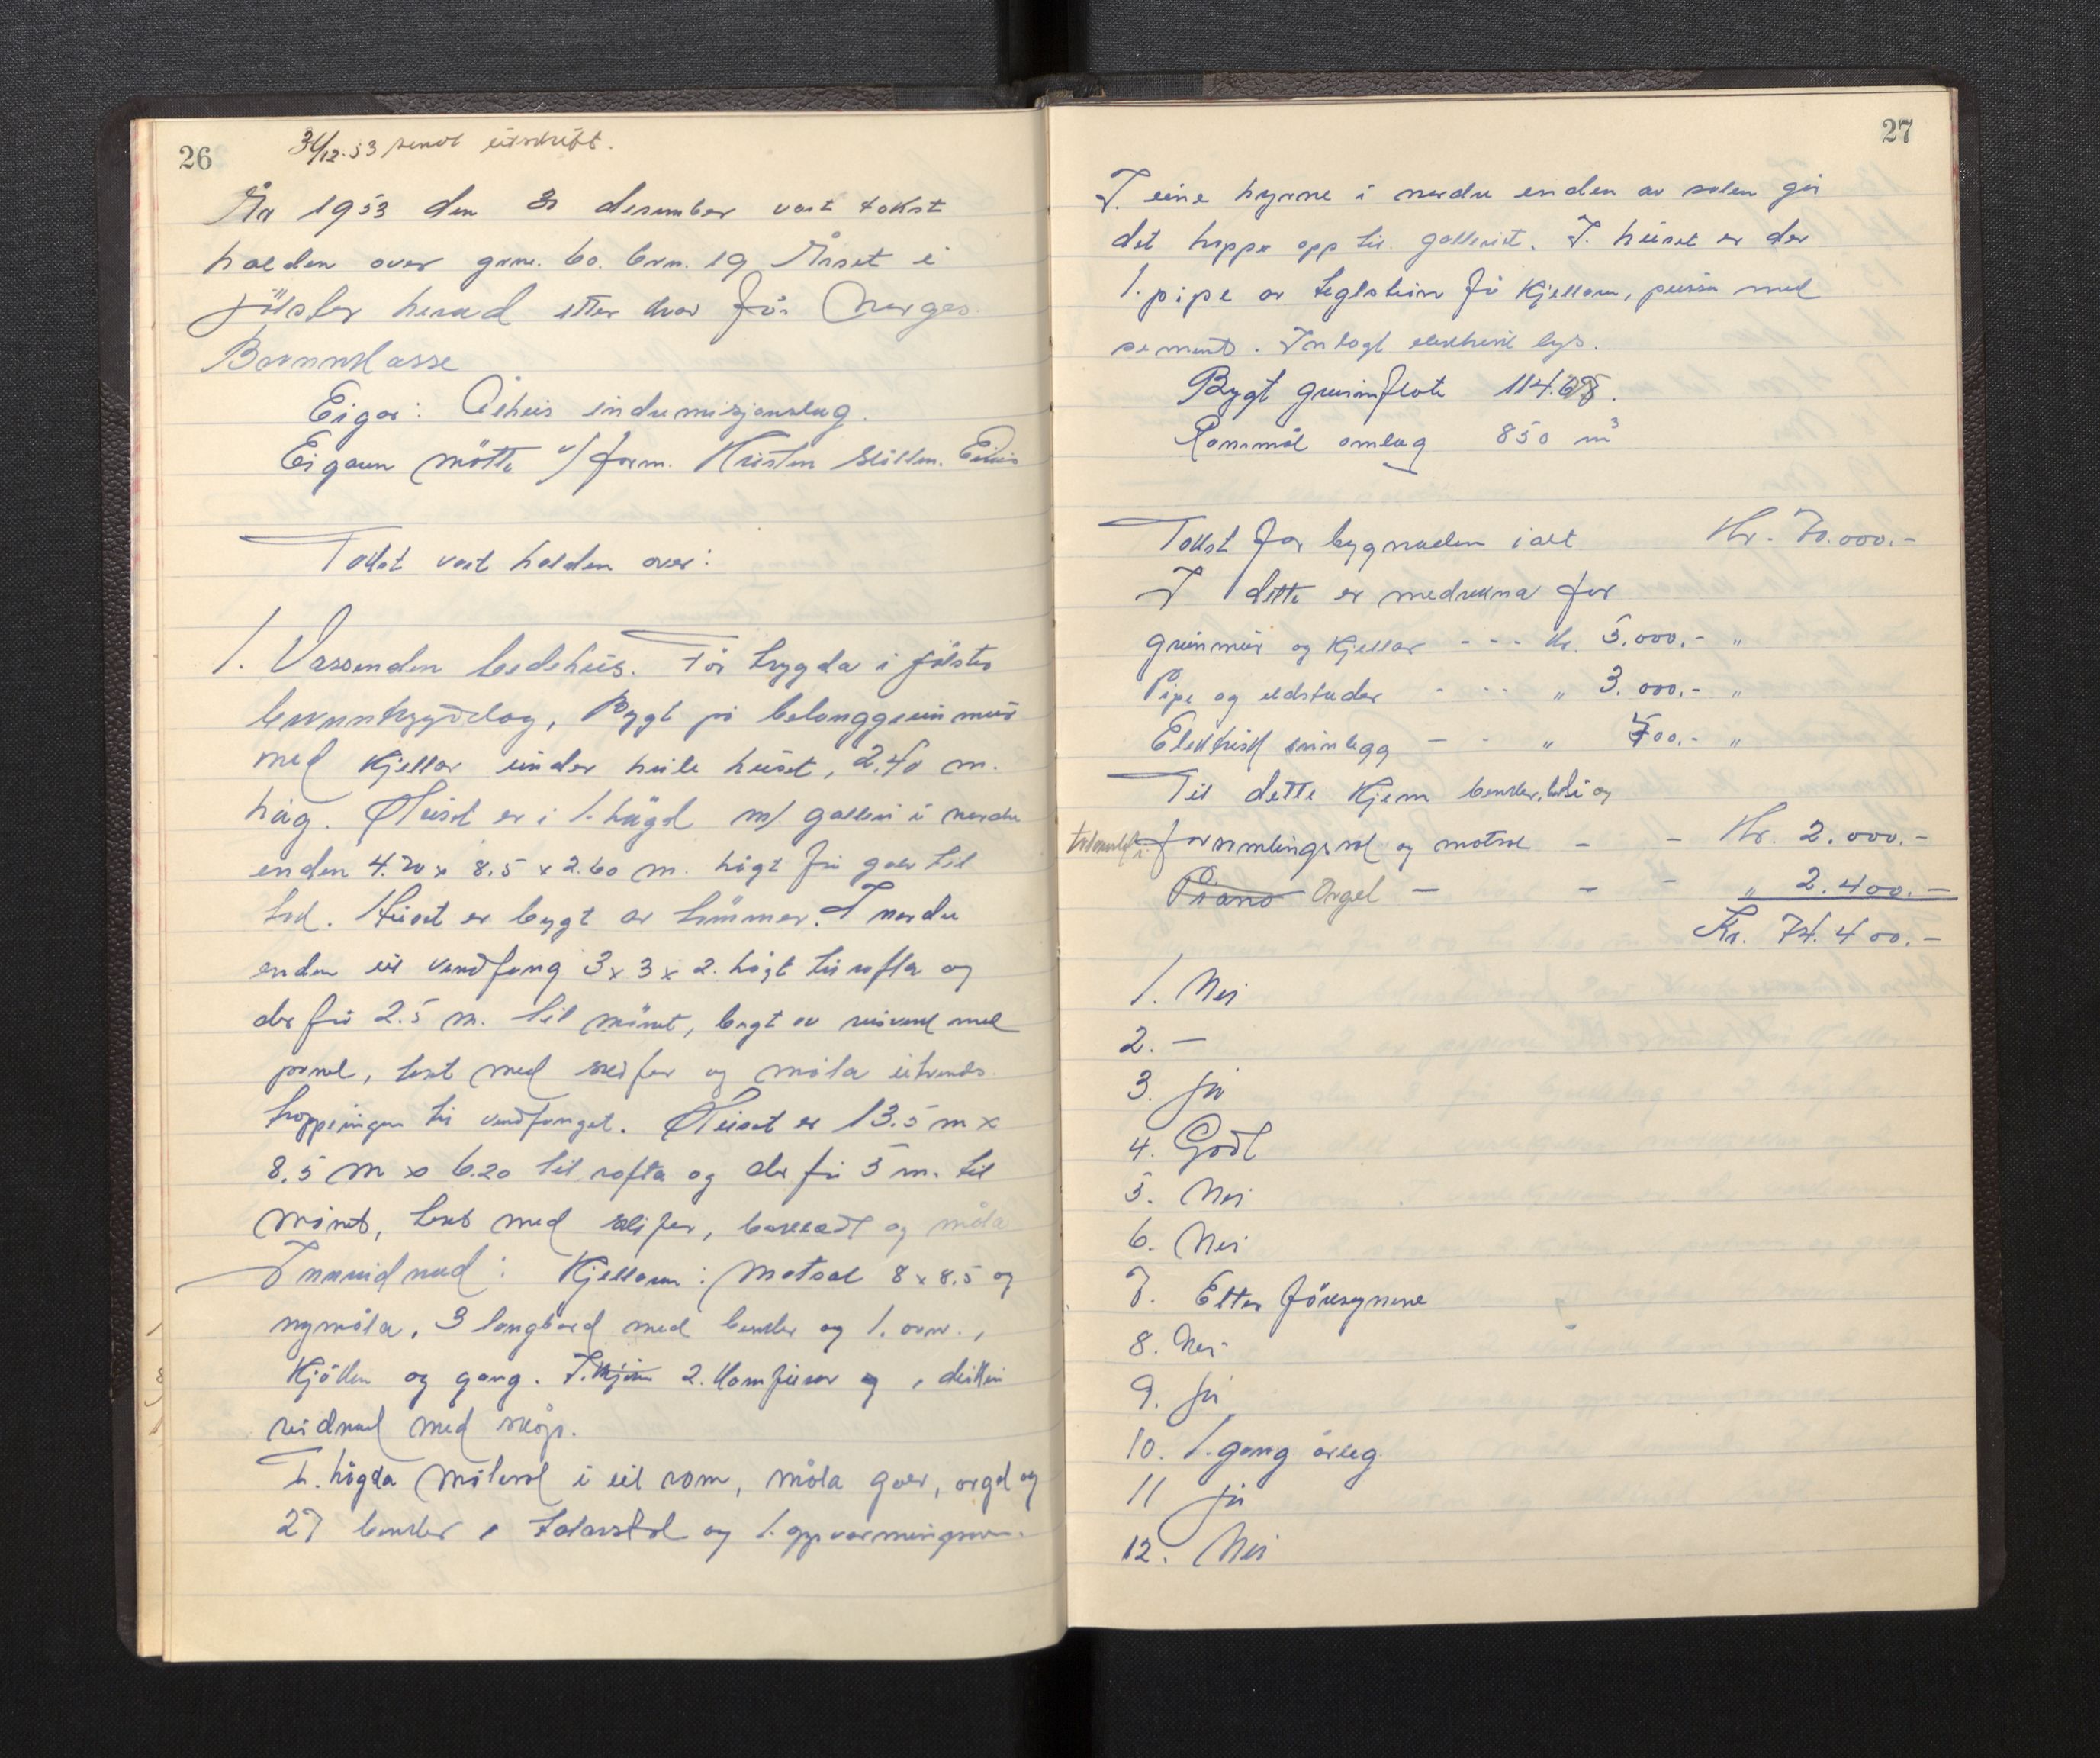 26
31/12-53 sendt utskrift.
År 1953 den 31 desember vart takst
halden over gnr. 60. bnr. 19 Årset i
Jölster herad etter krav frå Norges
Brannkasse
Eigar: Ålhus indremisjonslag.
Eigaren mötte v/ form. Kristen
Takst vart halden over:
1. Vassenden bedehus. Før bygda i Jölster
Bygt på betonggrunnmur
med kjellar under heile huset, 2.40 m.
høg. Huset er i 1. høgd m/ galleri i nordre
enden 4.20 x 8.5 x 2.60 m. høgt frå golv til
tak. Huset er bygt av tømmer. I nordre
enden eit vindfang 3 x 3 x 2. høgt til rofta og
der frå 2.5 m. til mønet, bygt av reisverk med
panel, tekt med skifer og måla utvendes.
trappeingen til vindfanget. Huset er 13.5 m x
8.5 m x 6.20 til rofta og der frå 5 m. til
mønet, tekt med skifer, bordkledt og måla
Innreidnad: Kjellaren: Matsal 8 x 8.5 og
nymåla, 3 langbord med benker og 1. omn.,
Kjøken og gang. 2. komfurar og
reidnad med skåp.
1. høgda Mötesal i eit rom, måla golv, orgel og
27 benker, talarstol og 1. oppvarmingsomn.
27
I eine hyrne i nordre enden av salen går
det trapp opp til galleriet. I huset er der
1. pipe av teglstein frå kjellaren, pussa med
sement. Innlagt elektrisk lys.
Bygt grunnflate 114.65.
Rommål omlag 850 m³
Takst for bygnaden i alt Kr. 70.000.-
I dette er medrekna for
grunmur og kjellar - - - kr. 5.000.- "
Pipe og eldstader - - - " 3.000.- "
Elektrisk innlegg - - " 500.- "
Til dette kjem benker, og
forsamlingssal og matsal - - Kr. 2.000.-
Piano Orgel - - - " 2.400.-
Kr. 74.400.-
1. Nei
2. —
3. Ja
4. Godt
5. Nei
6. Nei
7. Etter föresegnene
8. Nei
9. Ja
10. 1. gang årleg
11 Ja
12. Nei